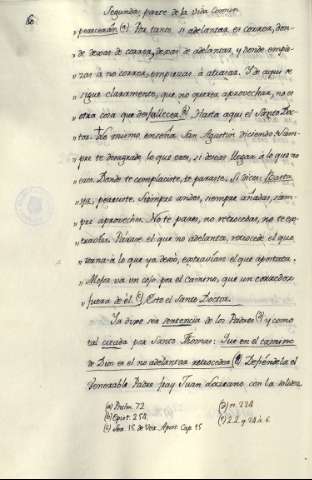 6
Segunda parte de la Vida Comun
"prociarán (a) Por tanto si adelantar es correr, don-
de dexas de correr, dexas de adelantar, y donde empie-
zas à no correr, empiezas à
Y de aqui se
sigue claramente, que no querer aprovechar, no es
otra cosa que desfallecer. (b) Hasta aqui el Santo Doc-
tor. Lo mismo enseña San Agustin diciendo: Siem-
pre te desagrade lo que eres, si deseas llegar à lo que no
eres. Donde te complaciste, te paraste. Si dices: Basta
ya, pereciste. Siempre andes, siempre añadas, siem-
pre aproveches. No te pares, no retrocedas, no te ex-
travies. Párase el que no adelanta, retrocede el que
torna à lo que ya dexó, extraviase el que apostata.
Mejor va un cojo por el camino, que un corredor
fuera de él. (c) Esto el Santo Doctor.
Ya dixe ser sentencia de los Padres (d) y como
tal citada por Santo Thomas: Que en el camino
de Dios es el no adelantar retroceder (e) Defiéndela el
Venerable Padre fray Juan
con la solidez
(a) Psalm. 72
(b) Epist. 254
(c) Ser. 15 de Verb. Apost. Cap. 15
(d) n. 224
(e) 2.2 q. 24 a. 6